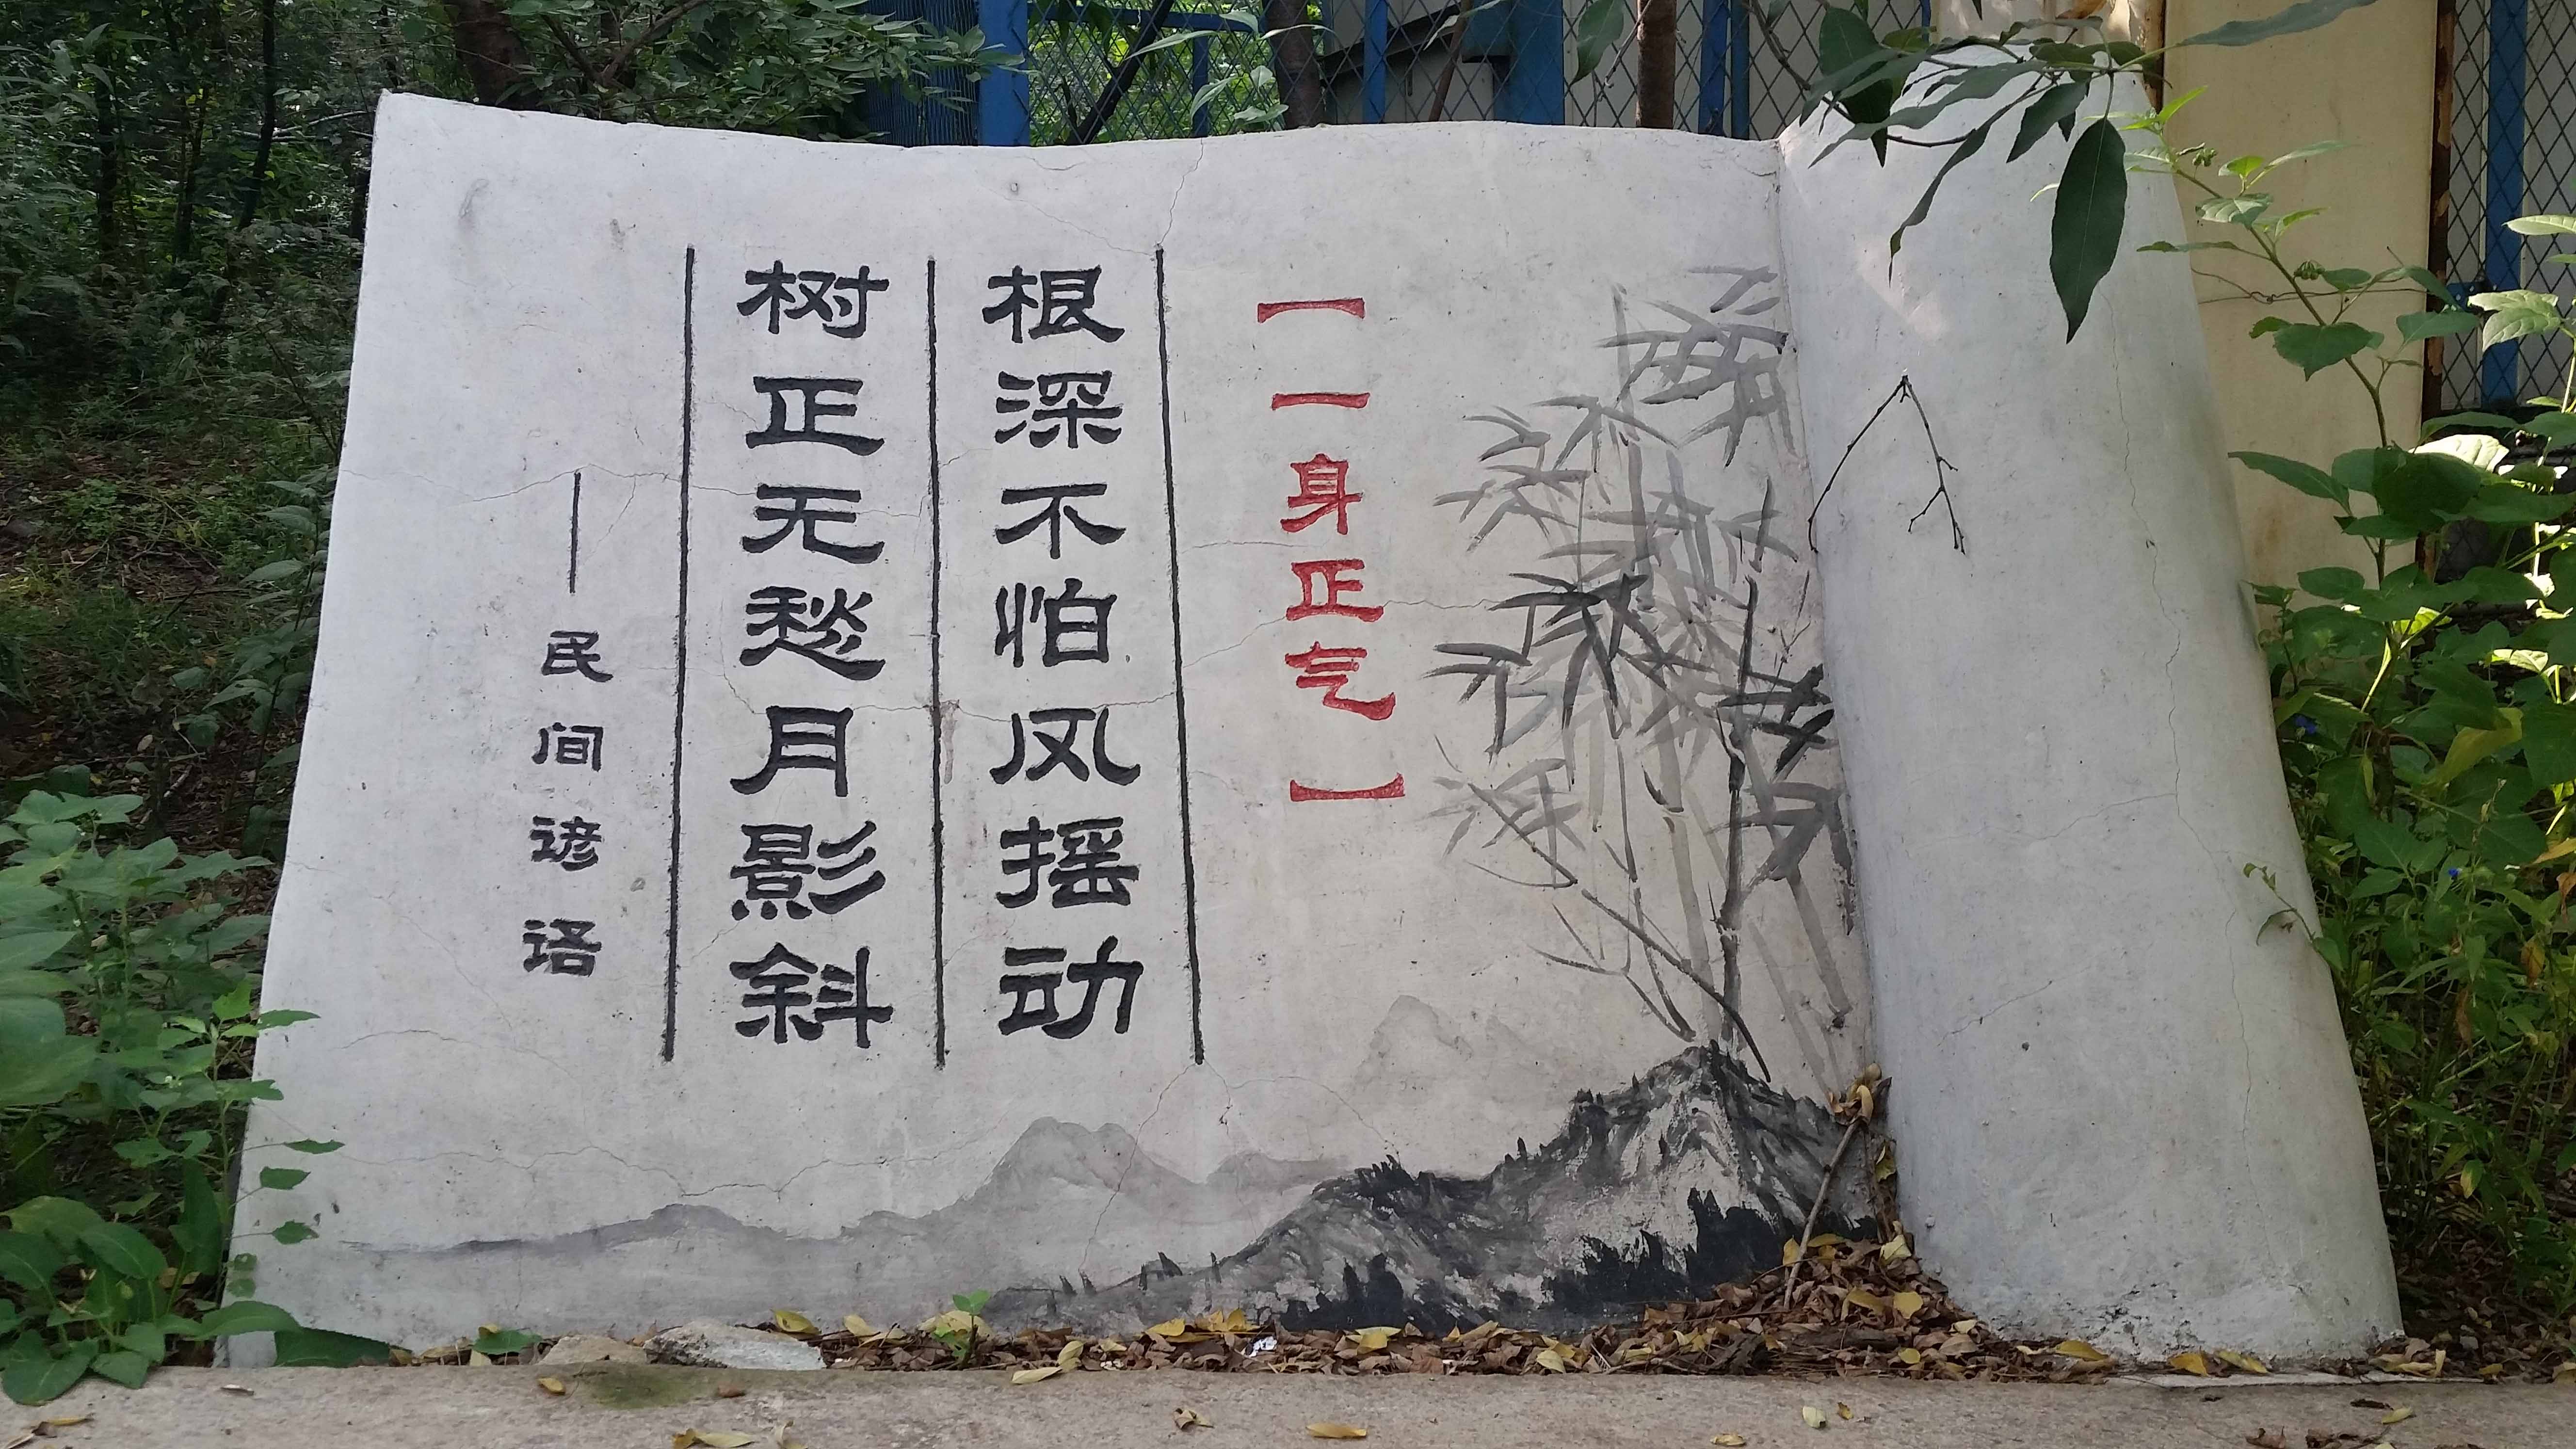 【一身正气】
根深不怕风摇动
树正无愁月影斜
——民间谚语